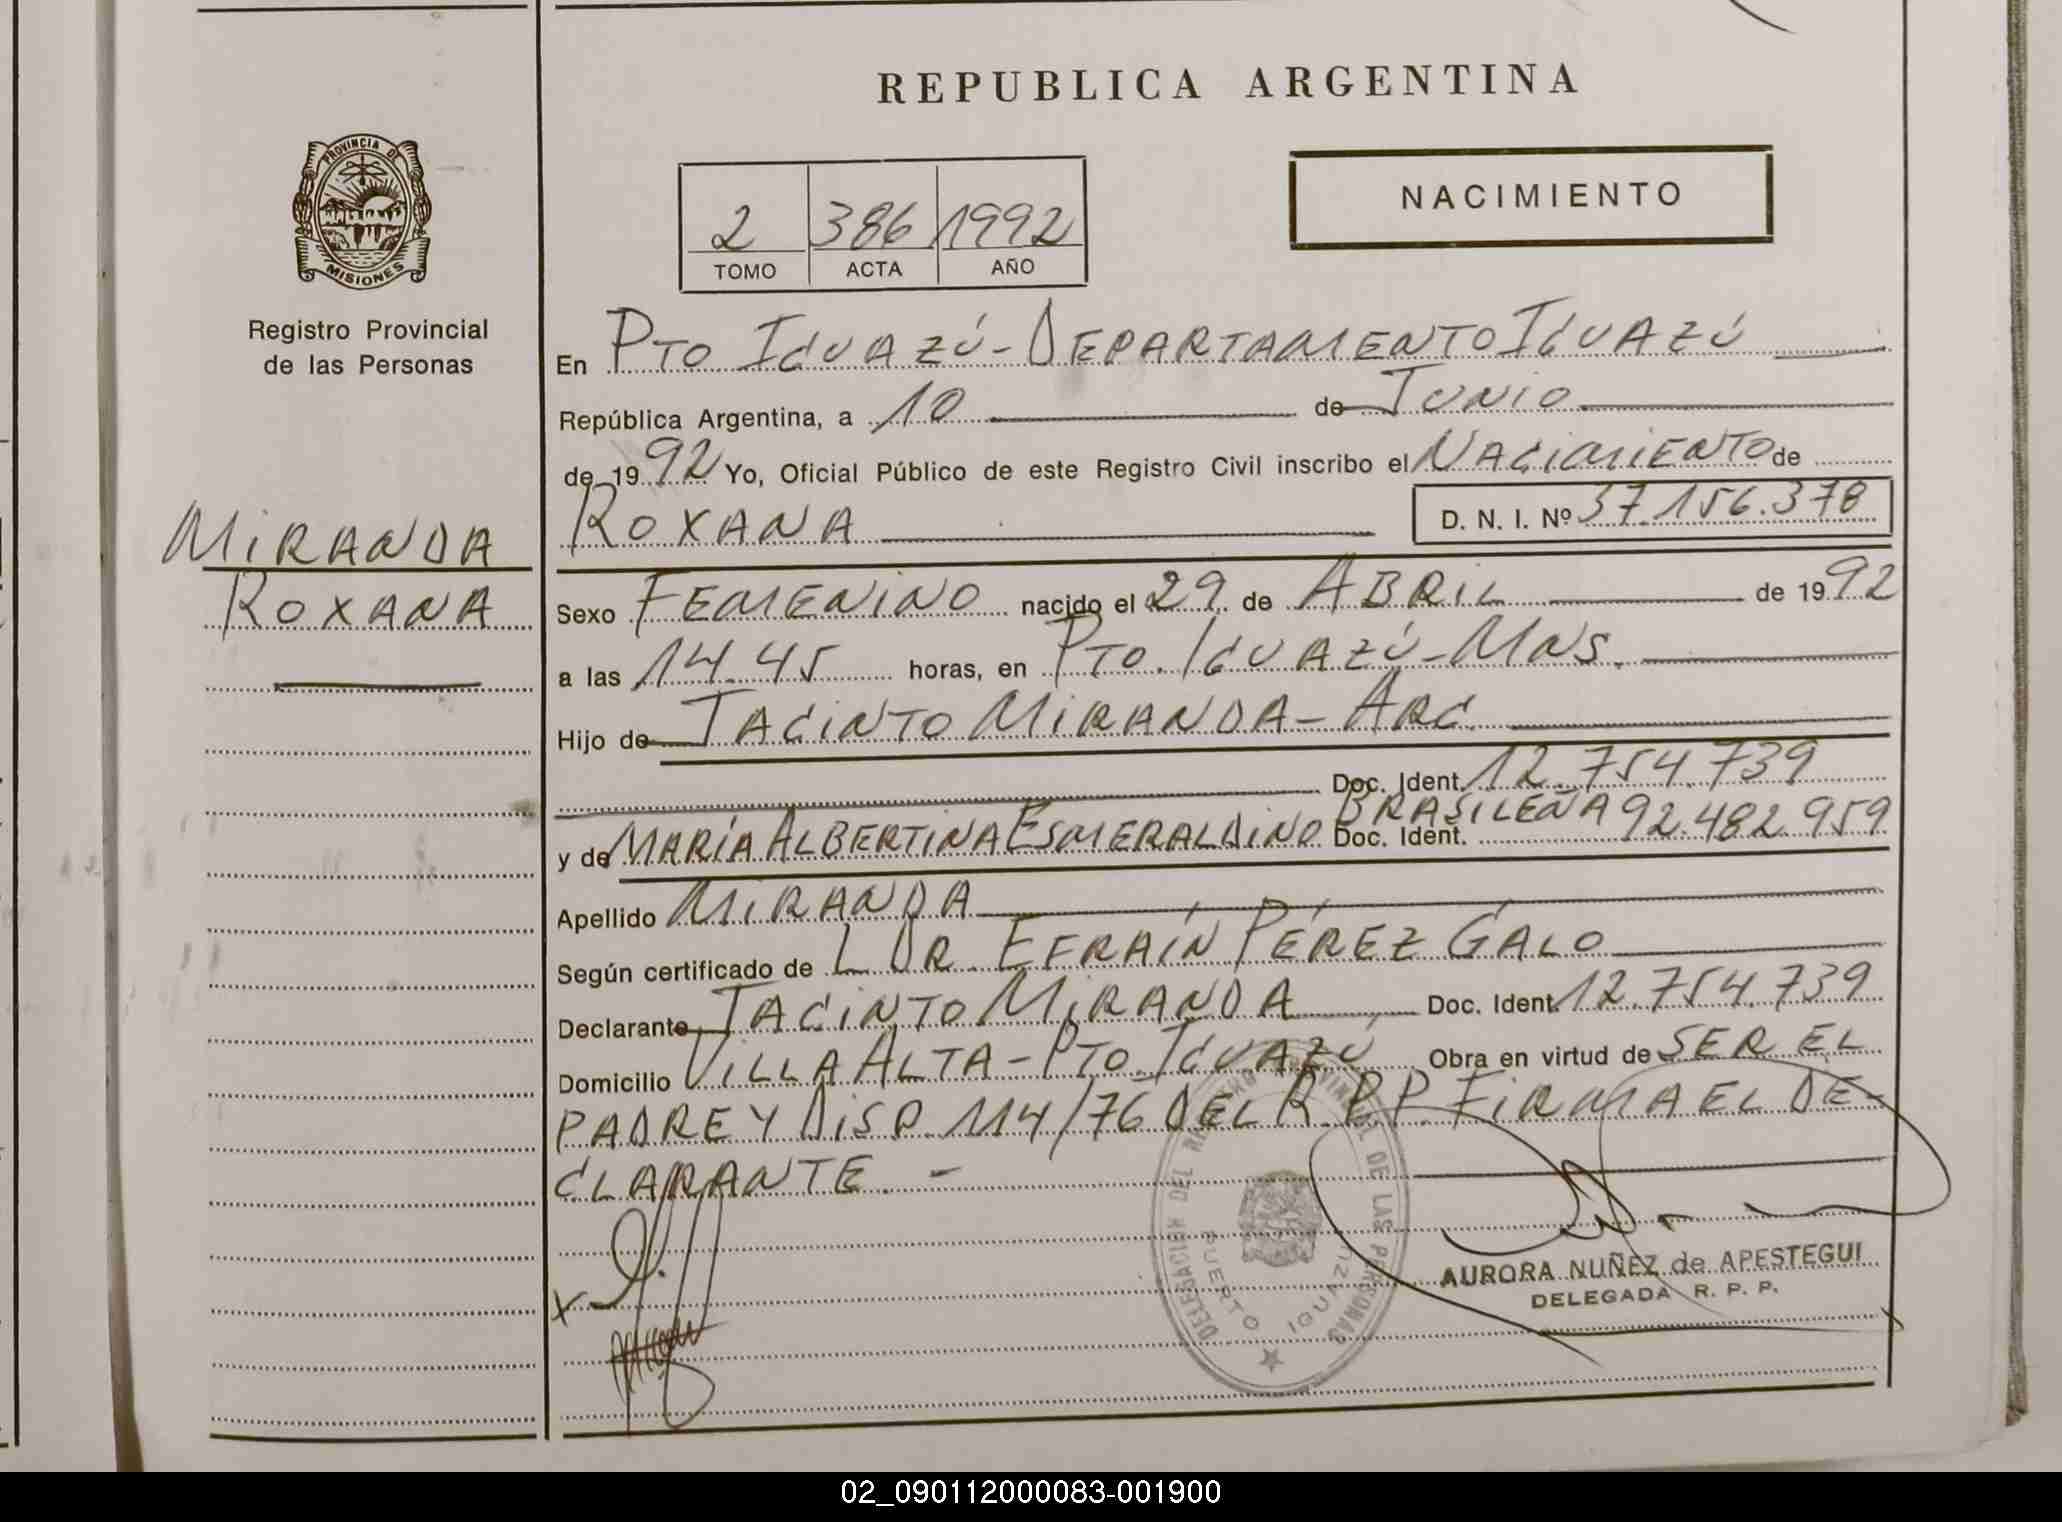 REPUBLICA ARGENTINA
PROVINCIA DE
MISIONES
Registro Provincial
de las Personas
MIRANDA
ROXANA
NACIMIENTO
2 386 1992
TOMO ACTA AÑO
En PTO IGUAZÚ - DEPARTAMENTO IGUAZÚ
República Argentina, a 10 de JUNIO
de 1992 Yo, Oficial Público de este Registro Civil inscribo el NACIMIENTO de
ROXANA D. N. I. Nº 37.156.378
Sexo FEMENINO nacido el 29 de ABRIL de 1992
a las 14.45 horas, en PTO. IGUAZÚ - MNS.
Hijo de JACINTO MIRANDA - ARG.
Doc. Ident. 12.754.739
y de MARÍA ALBERTINA ESMERALDINO BRASILEÑA Doc. Ident. 92.482.959
Apellido MIRANDA
Según certificado de L DR. EFRAÍN PÉREZ GALO
Declarante JACINTO MIRANDA Doc. Ident. 12.754.739
Domicilio VILLA ALTA - PTO. IGUAZÚ Obra en virtud de SER EL
PADRE Y DISP. 114/76 DEL R.P.P. FIRMA EL DE-
CLARANTE. -
X
DELEGACION DEL REGISTRO PROVINCIAL DE LAS PERSONAS
PUERTO IGUAZU
AURORA NUÑEZ de APESTEGUI
DELEGADA R. P. P.
02_090112000083-001900